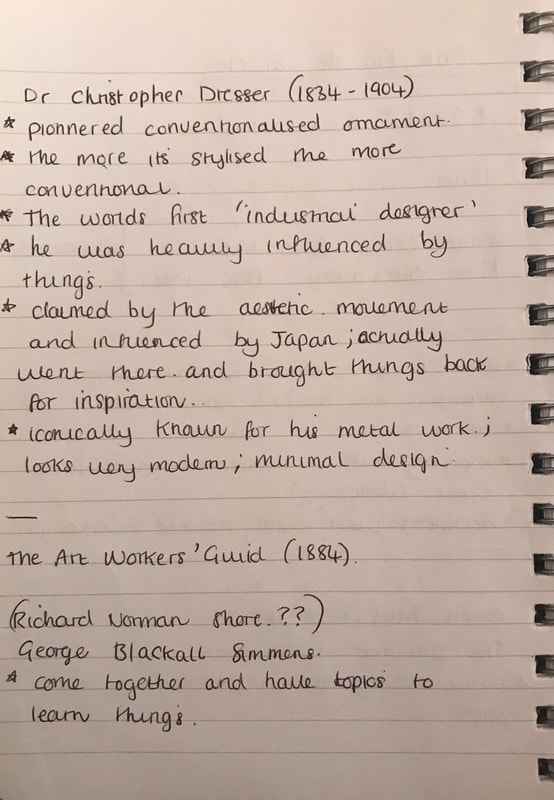 Dr Christopher Dresser (1834 - 1904)
* pionnered conventionalised ornament.
* the more its stylised the more
conventional.
* The worlds first 'industrial designer'
* he was heavily influenced by
things.
* claimed by the aestetic. movement
and influenced by Japan ; actually
went there. and brought things back
for inspiration..
* iconically known for his metal work. ;
looks very modern ; minimal design.
—
The Art Workers' Guild (1884).
(Richard Norman Shore. ??)
George Blackall Simmens.
* come together and have topics to
learn things.